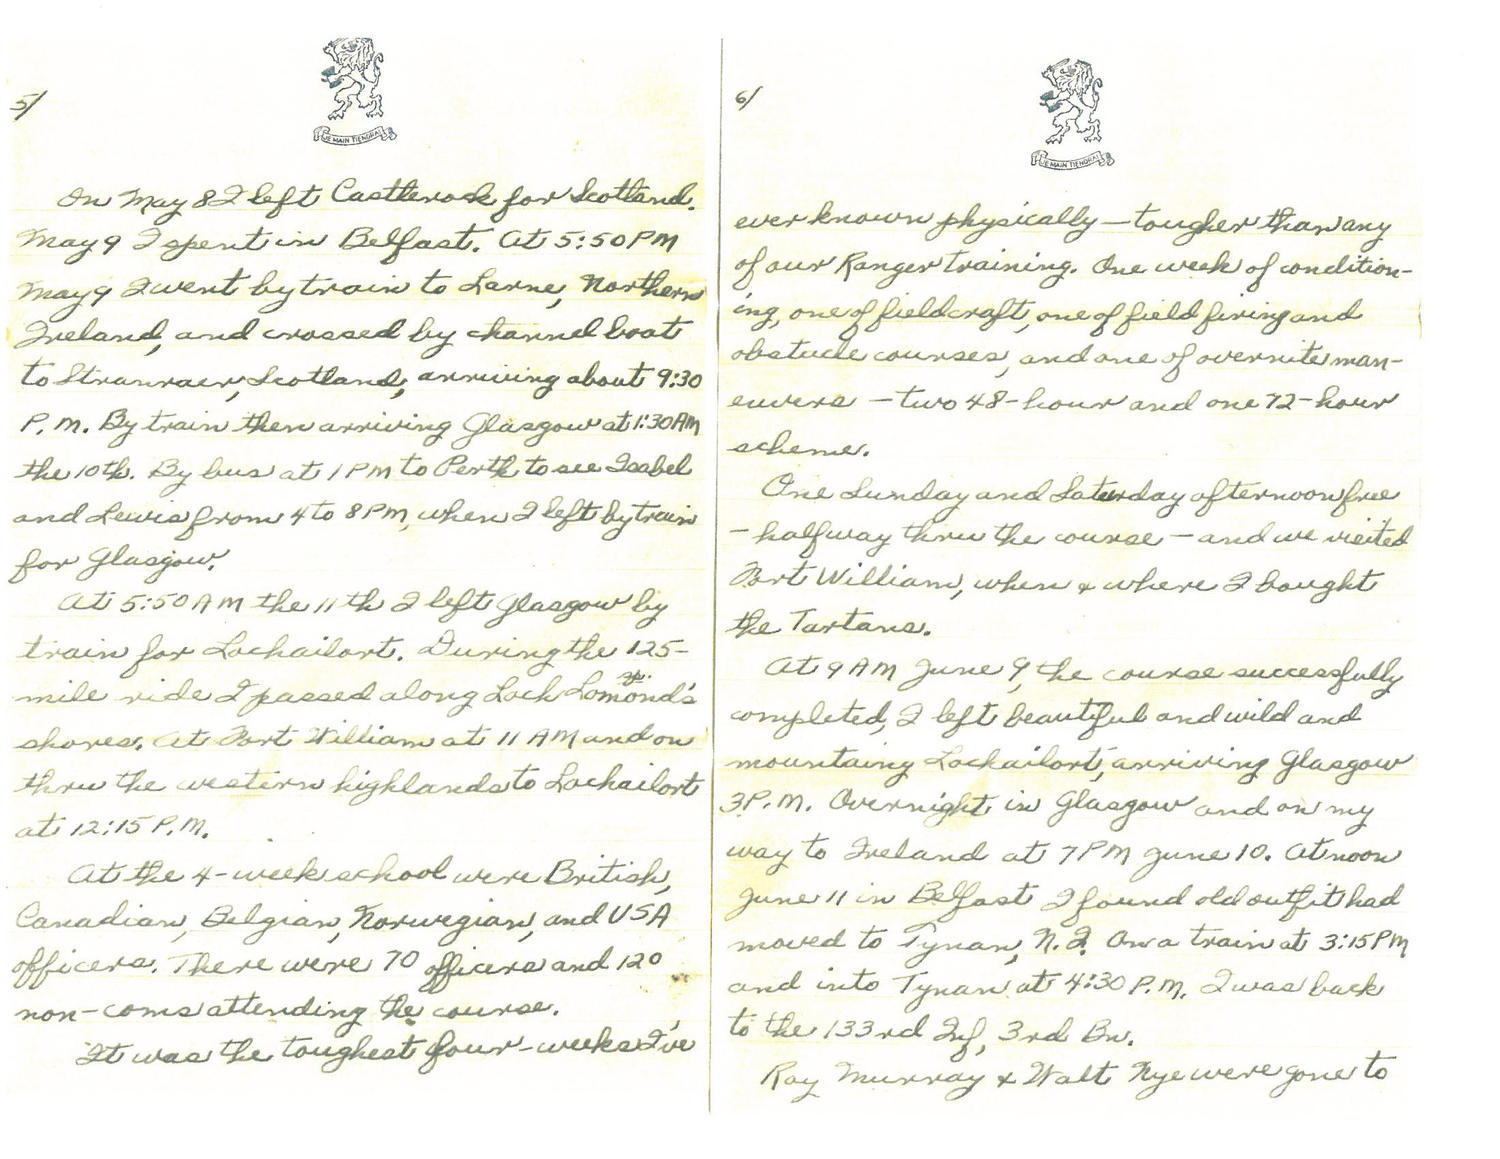 5/
JE MAIN TIENDRAI
On May 8 I left Castlerock for Scotland.
May 9 I spent in Belfast. At 5:50 PM
May 9 I went by train to Larne, Northern
Ireland, and crossed by channel boat
to Stranraer, Scotland, arriving about 9:30
P.M. By train then arriving Glasgow at 1:30 AM
the 10th. By bus at 1 PM to Perth to see Isabel
and Lewis from 4 to 8 PM, when I left by train
for Glasgow.
At 5:50 AM the 11th I left Glasgow by
train for Lochailort. During the 125-
mile ride I passed along Loch Lomond's
shores. At Fort William at 11 AM and on
thru the western highlands to Lochailort
at 12:15 P.M.
At the 4-week school were British,
Canadian, Belgian, Norwegian, and USA
officers. There were 70 officers and 120
non-coms attending the course.
It was the toughest four-weeks I've
6/
JE MAIN TIENDRAI
ever known physically — tougher than any
of our Ranger training. One week of condition-
ing, one of fieldcraft, one of field firing and
obstacle courses, and one of overnite man-
euvers — two 48-hour and one 72-hour
scheme.
One Sunday and Saturday afternoon free
— halfway thru the course — and we visited
Fort William, when & where I bought
the Tartans.
At 9 AM June 9, the course successfully
completed, I left beautiful and wild and
mountaing Lochailort, arriving Glasgow
3 P.M. Overnight in Glasgow and on my
way to Ireland at 7 PM June 10. At noon
June 11 in Belfast I found old outfit had
moved to Tynan, N.I. On a train at 3:15 PM
and into Tynan at 4:30 P.M. I was back
to the 133rd Inf, 3rd Bn.
Ray Murray & Walt Nye were gone to